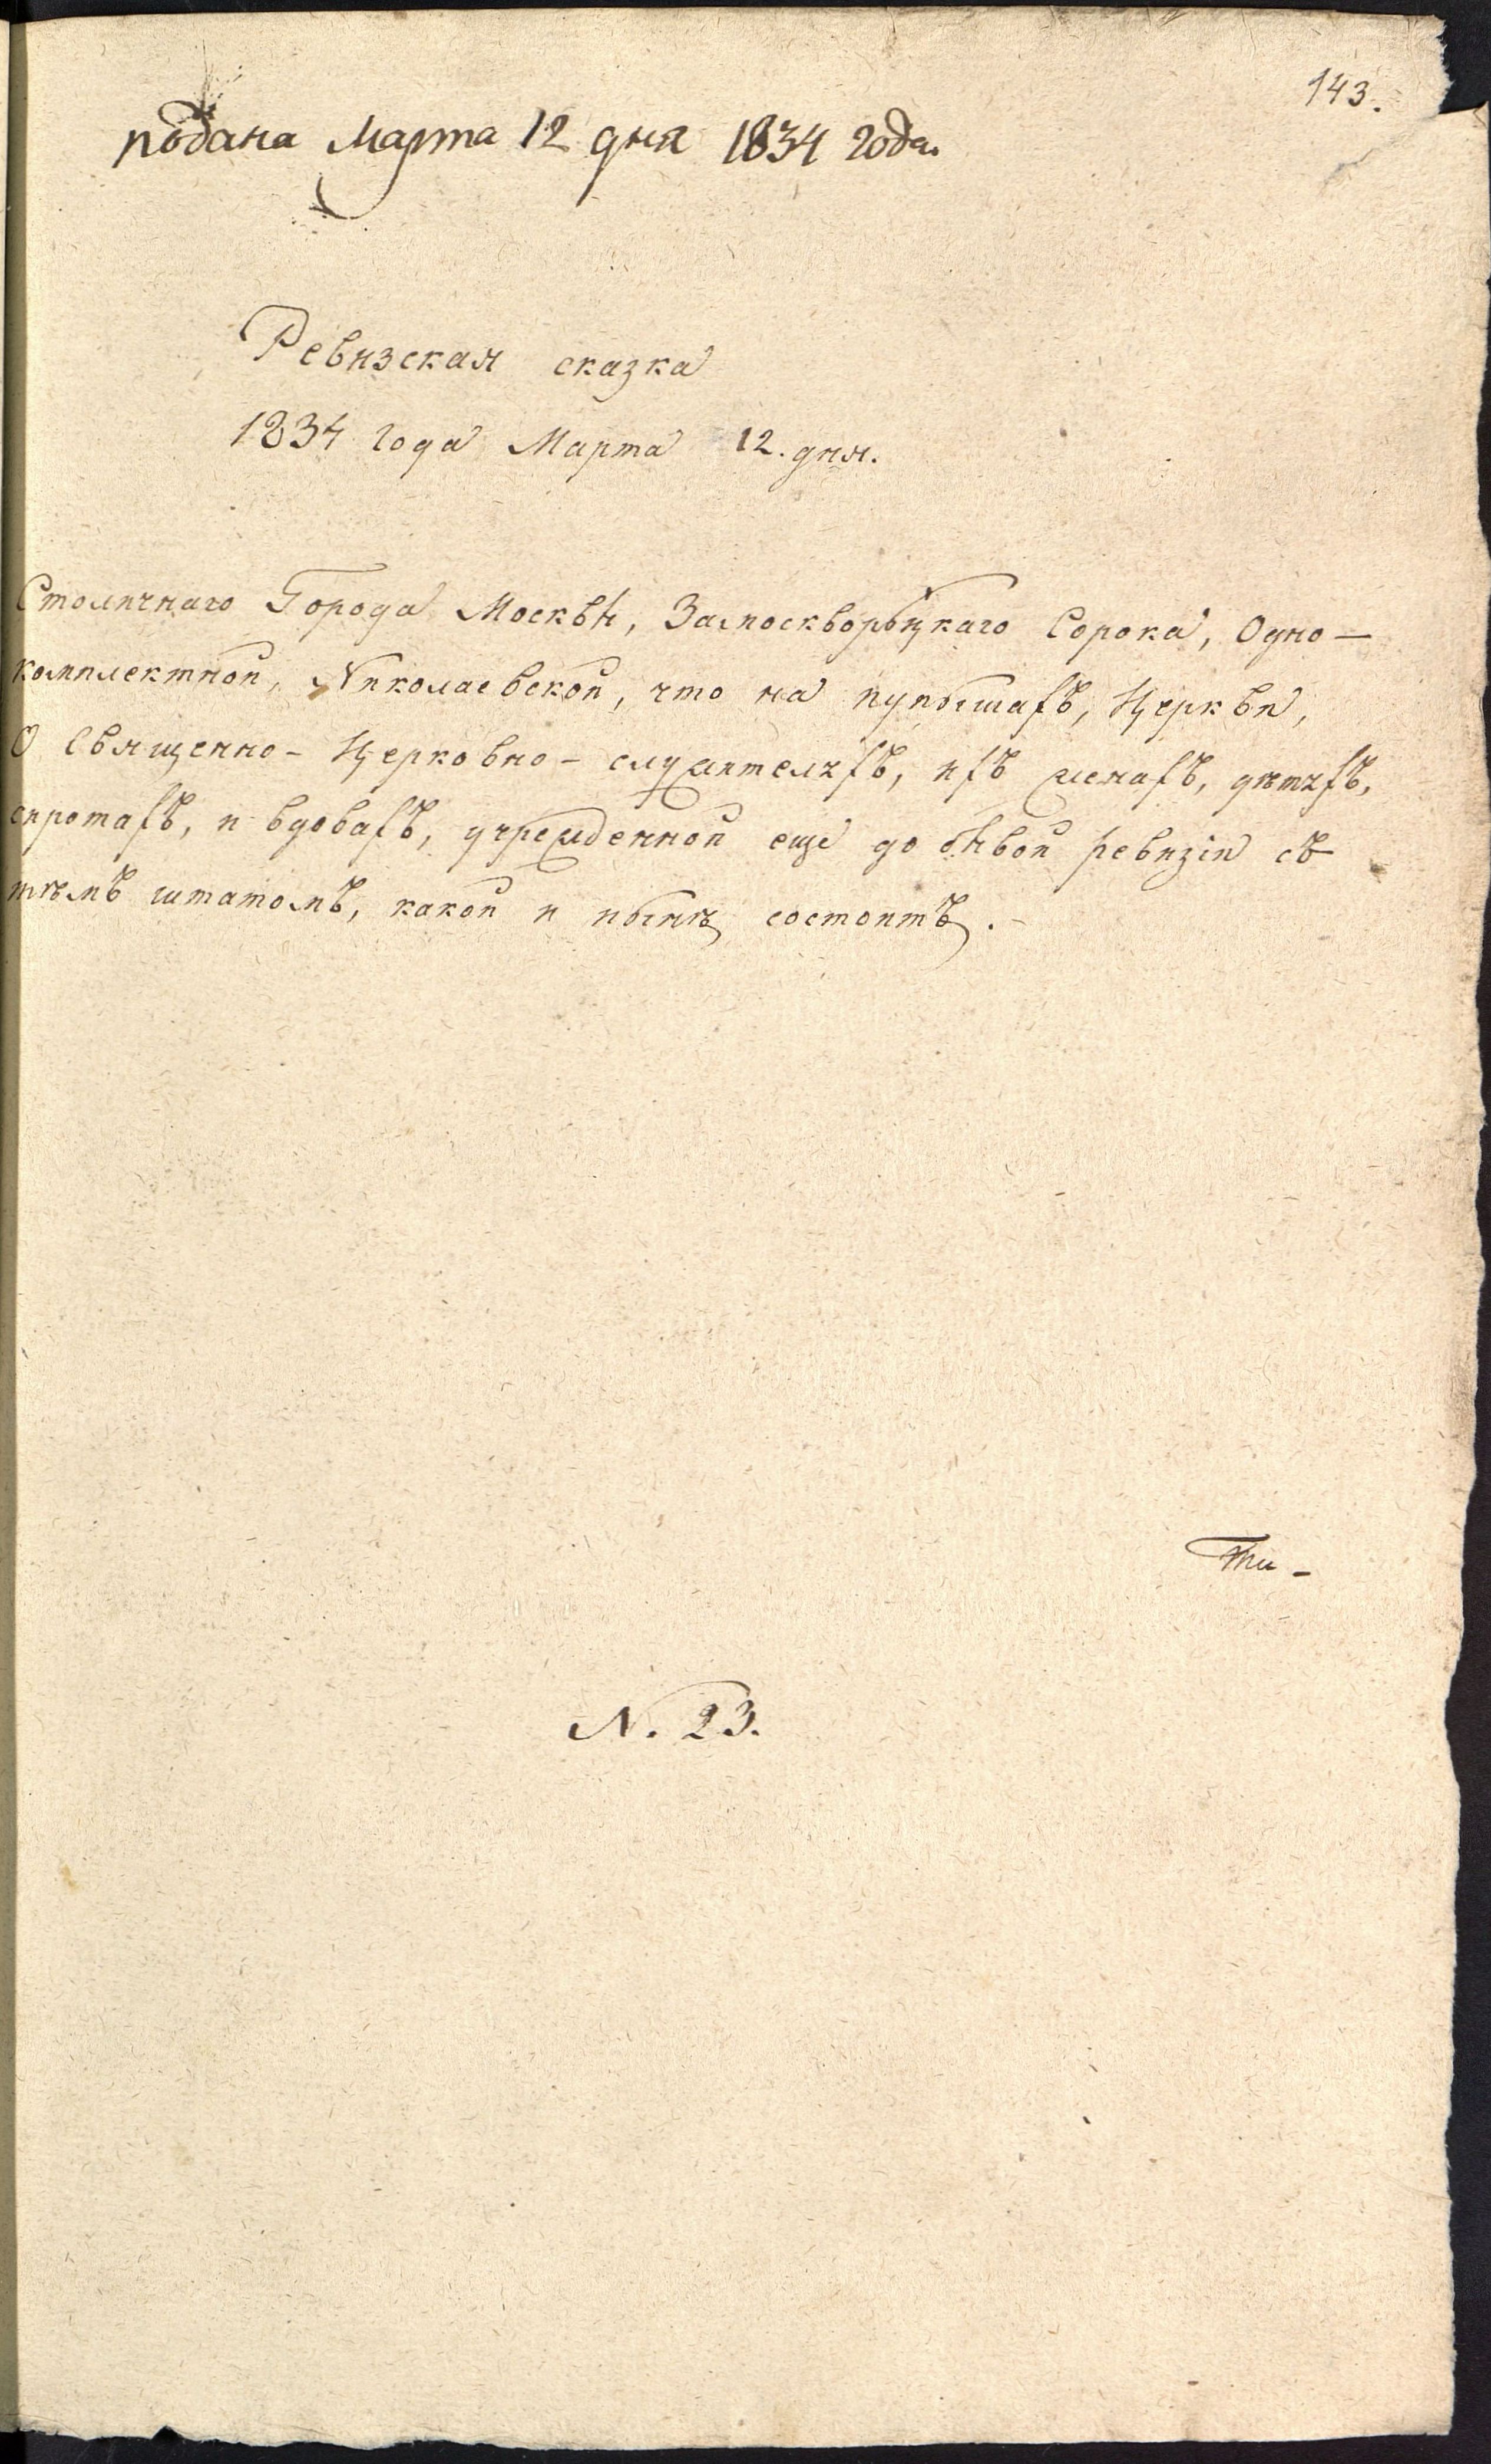 143.
подана Марта 12 дня 1834 года.
Ревизская сказка
1834 года Марта 12. дня.
Столичнаго Города Москвы, Замоскворѣцкаго Сорока, Одно-
комплектной, Николаевской, что на пупышахъ, Церкви,
О Священно-Церковно-служителяхъ, ихъ женахъ, дѣтяхъ,
сиротахъ, и вдовахъ, учрежденной еще до бывой ревизіи съ
тѣмъ штатомъ, какой и нынѣ состоитъ.-
Ти-
N. 23.